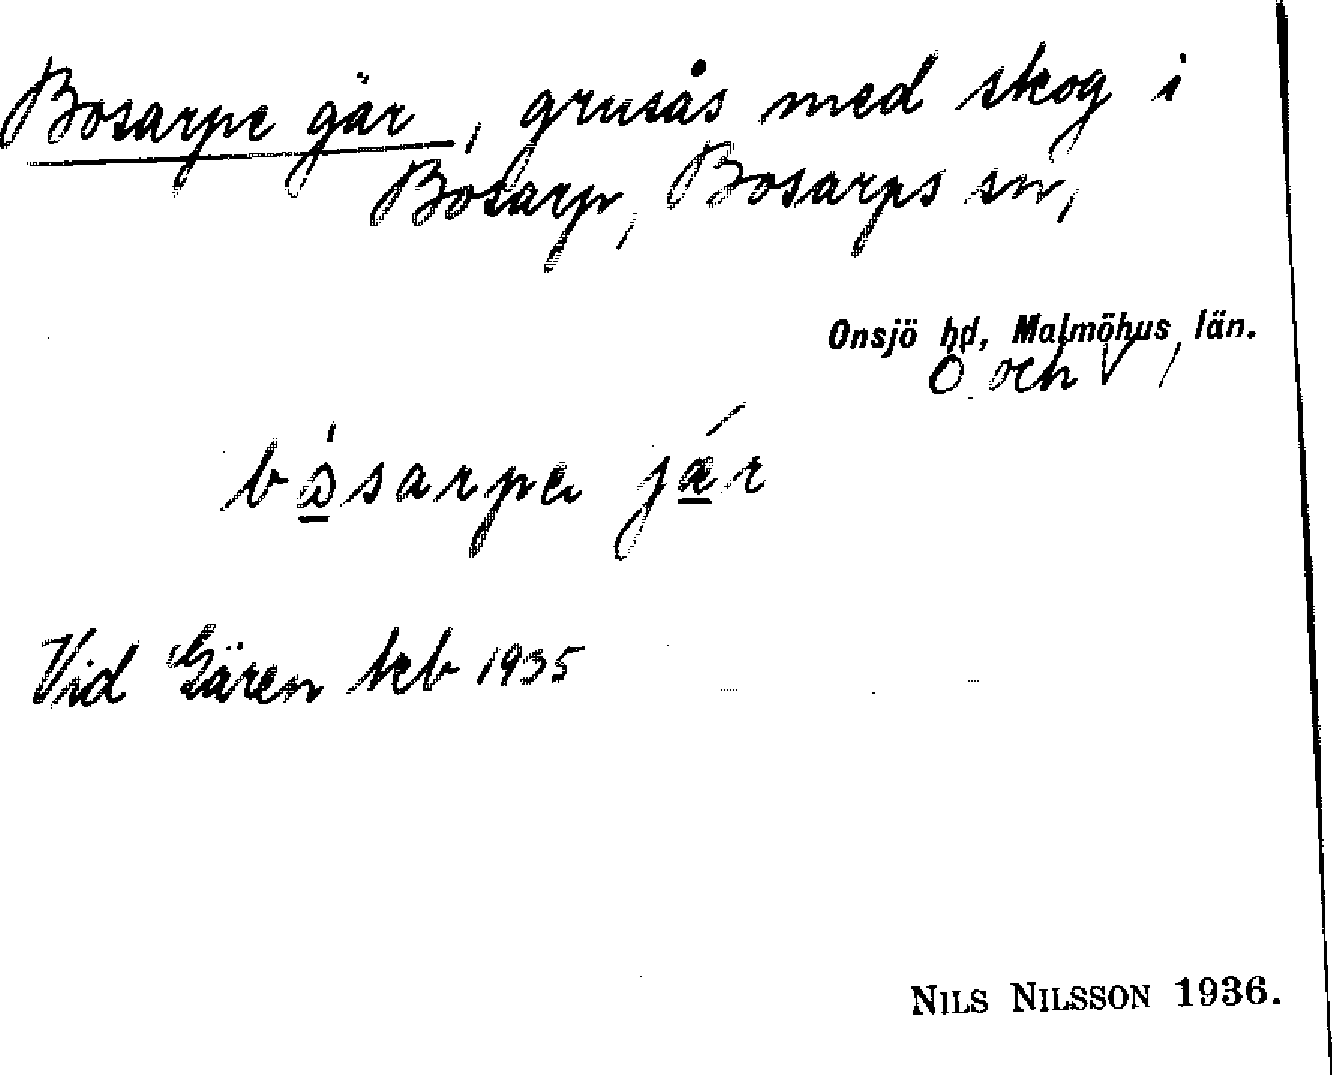 Bosarpe gär, grusås med skog i
Bosarp, Bosarps sn,
Onsjö hd, Malmöhus län.
Ö och V
bɷ̀sarpə jǽr
Vid Gären kb 1935
NILS NILSSON 1936.